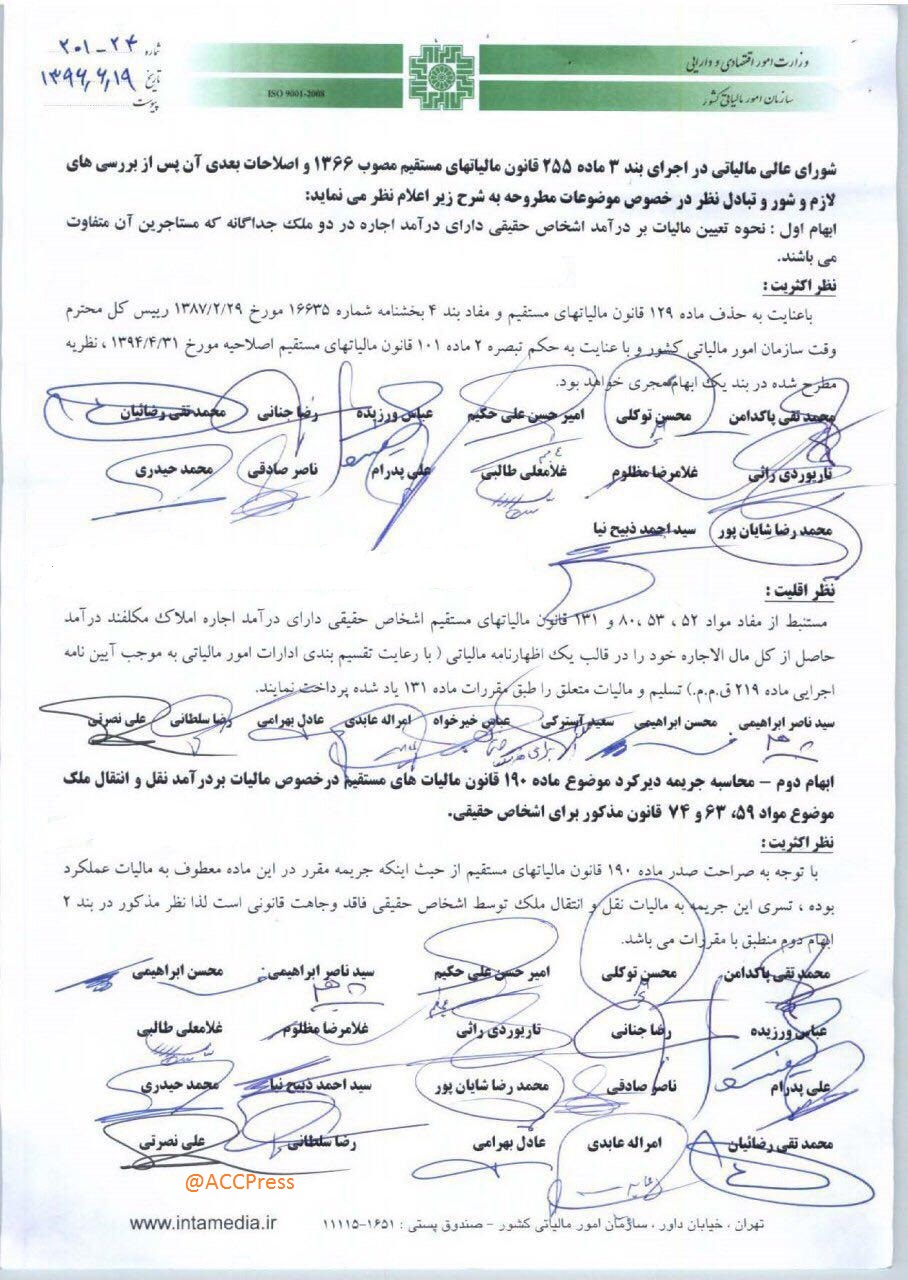 شماره ۲۴-۲۰۱
تاریخ ۱۳۹۶,۶,۱۹
پیوست
وزارت امور اقتصادی و دارایی
سازمان امور مالیاتی کشور
ISO 9001-2008
شورای عالی مالیاتی در اجرای بند ۳ ماده ۲۵۵ قانون مالیاتهای مستقیم مصوب ۱۳۶۶ و اصلاحات بعدی آن پس از بررسی های
لازم و شور و تبادل نظر در خصوص موضوعات مطروحه به شرح زیر اعلام نظر می نماید:
ابهام اول : نحوه تعیین مالیات بر درآمد اشخاص حقیقی دارای درآمد اجاره در دو ملک جداگانه که مستاجرین آن متفاوت
می باشند.
نظر اکثریت :
باعنایت به حذف ماده ۱۲۹ قانون مالیاتهای مستقیم و مفاد بند ۴ بخشنامه شماره ۱۶۶۳۵ مورخ ۱۳۸۷/۲/۲۹ رییس کل محترم
وقت سازمان امور مالیاتی کشور و با عنایت به حکم تبصره ۲ ماده ۱۰۱ قانون مالیاتهای مستقیم اصلاحیه مورخ ۱۳۹۴/۴/۳۱ ، نظریه
مطرح شده در بند یک ابهام مجری خواهد بود.
محمد تقی پاکدامن محسن توکلی امیر حسن علی حکیم عباس ورزیده رضا جنانی محمد تقی رضائیان
تاریوردی راثی غلامرضا مظلوم غلامعلی طالبی علی پدرام ناصر صادقی محمد حیدری
محمد رضا شایان پور سید احمد ذبیح نیا
نظر اقلیت :
مستنبط از مفاد مواد ۵۲ ، ۵۳ ،۸۰ و ۱۳۱ قانون مالیاتهای مستقیم اشخاص حقیقی دارای درآمد اجاره املاک مکلفند درآمد
حاصل از کل مال الاجاره خود را در قالب یک اظهارنامه مالیاتی ( با رعایت تقسیم بندی ادارات امور مالیاتی به موجب آیین نامه
اجرایی ماده ۲۱۹ ق.م.م.) تسلیم و مالیات متعلق را طبق مقررات ماده ۱۳۱ یاد شده پرداخت نمایند.
سید ناصر ابراهیمی محسن ابراهیمی سعید آسترکی عباس خیرخواه امراله عابدی عادل بهرامی رضا سلطانی علی نصرتی
ابهام دوم – محاسبه جریمه دیرکرد موضوع ماده ۱۹۰ قانون مالیات های مستقیم درخصوص مالیات بردرآمد نقل و انتقال ملک
موضوع مواد ۵۹، ۶۳ و ۷۴ قانون مذکور برای اشخاص حقیقی.
نظر اکثریت :
با توجه به صراحت صدر ماده ۱۹۰ قانون مالیاتهای مستقیم از حیث اینکه جریمه مقرر در این ماده معطوف به مالیات عملکرد
بوده ، تسری این جریمه به مالیات نقل و انتقال ملک توسط اشخاص حقیقی فاقد وجاهت قانونی است لذا نظر مذکور در بند ۲
ابهام دوم منطبق با مقررات می باشد.
محمد تقی پاکدامن محسن توکلی امیر حسن علی حکیم سید ناصر ابراهیمی محسن ابراهیمی
عباس ورزیده رضا جنانی تاریوردی راثی غلامرضا مظلوم غلامعلی طالبی
علی پدرام ناصر صادقی محمد رضا شایان پور سید احمد ذبیح نیا محمد حیدری
محمد تقی رضائیان امراله عابدی عادل بهرامی رضا سلطانی علی نصرتی
@ACCPress
تهران ، خیابان داور ، سازمان امور مالیاتی کشور – صندوق پستی : ۱۶۵۱-۱۱۱۱۵
www.intamedia.ir